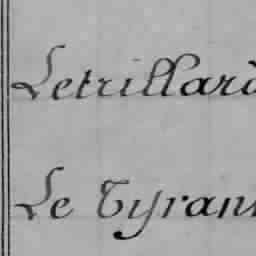 Letrillard
Le Tyran